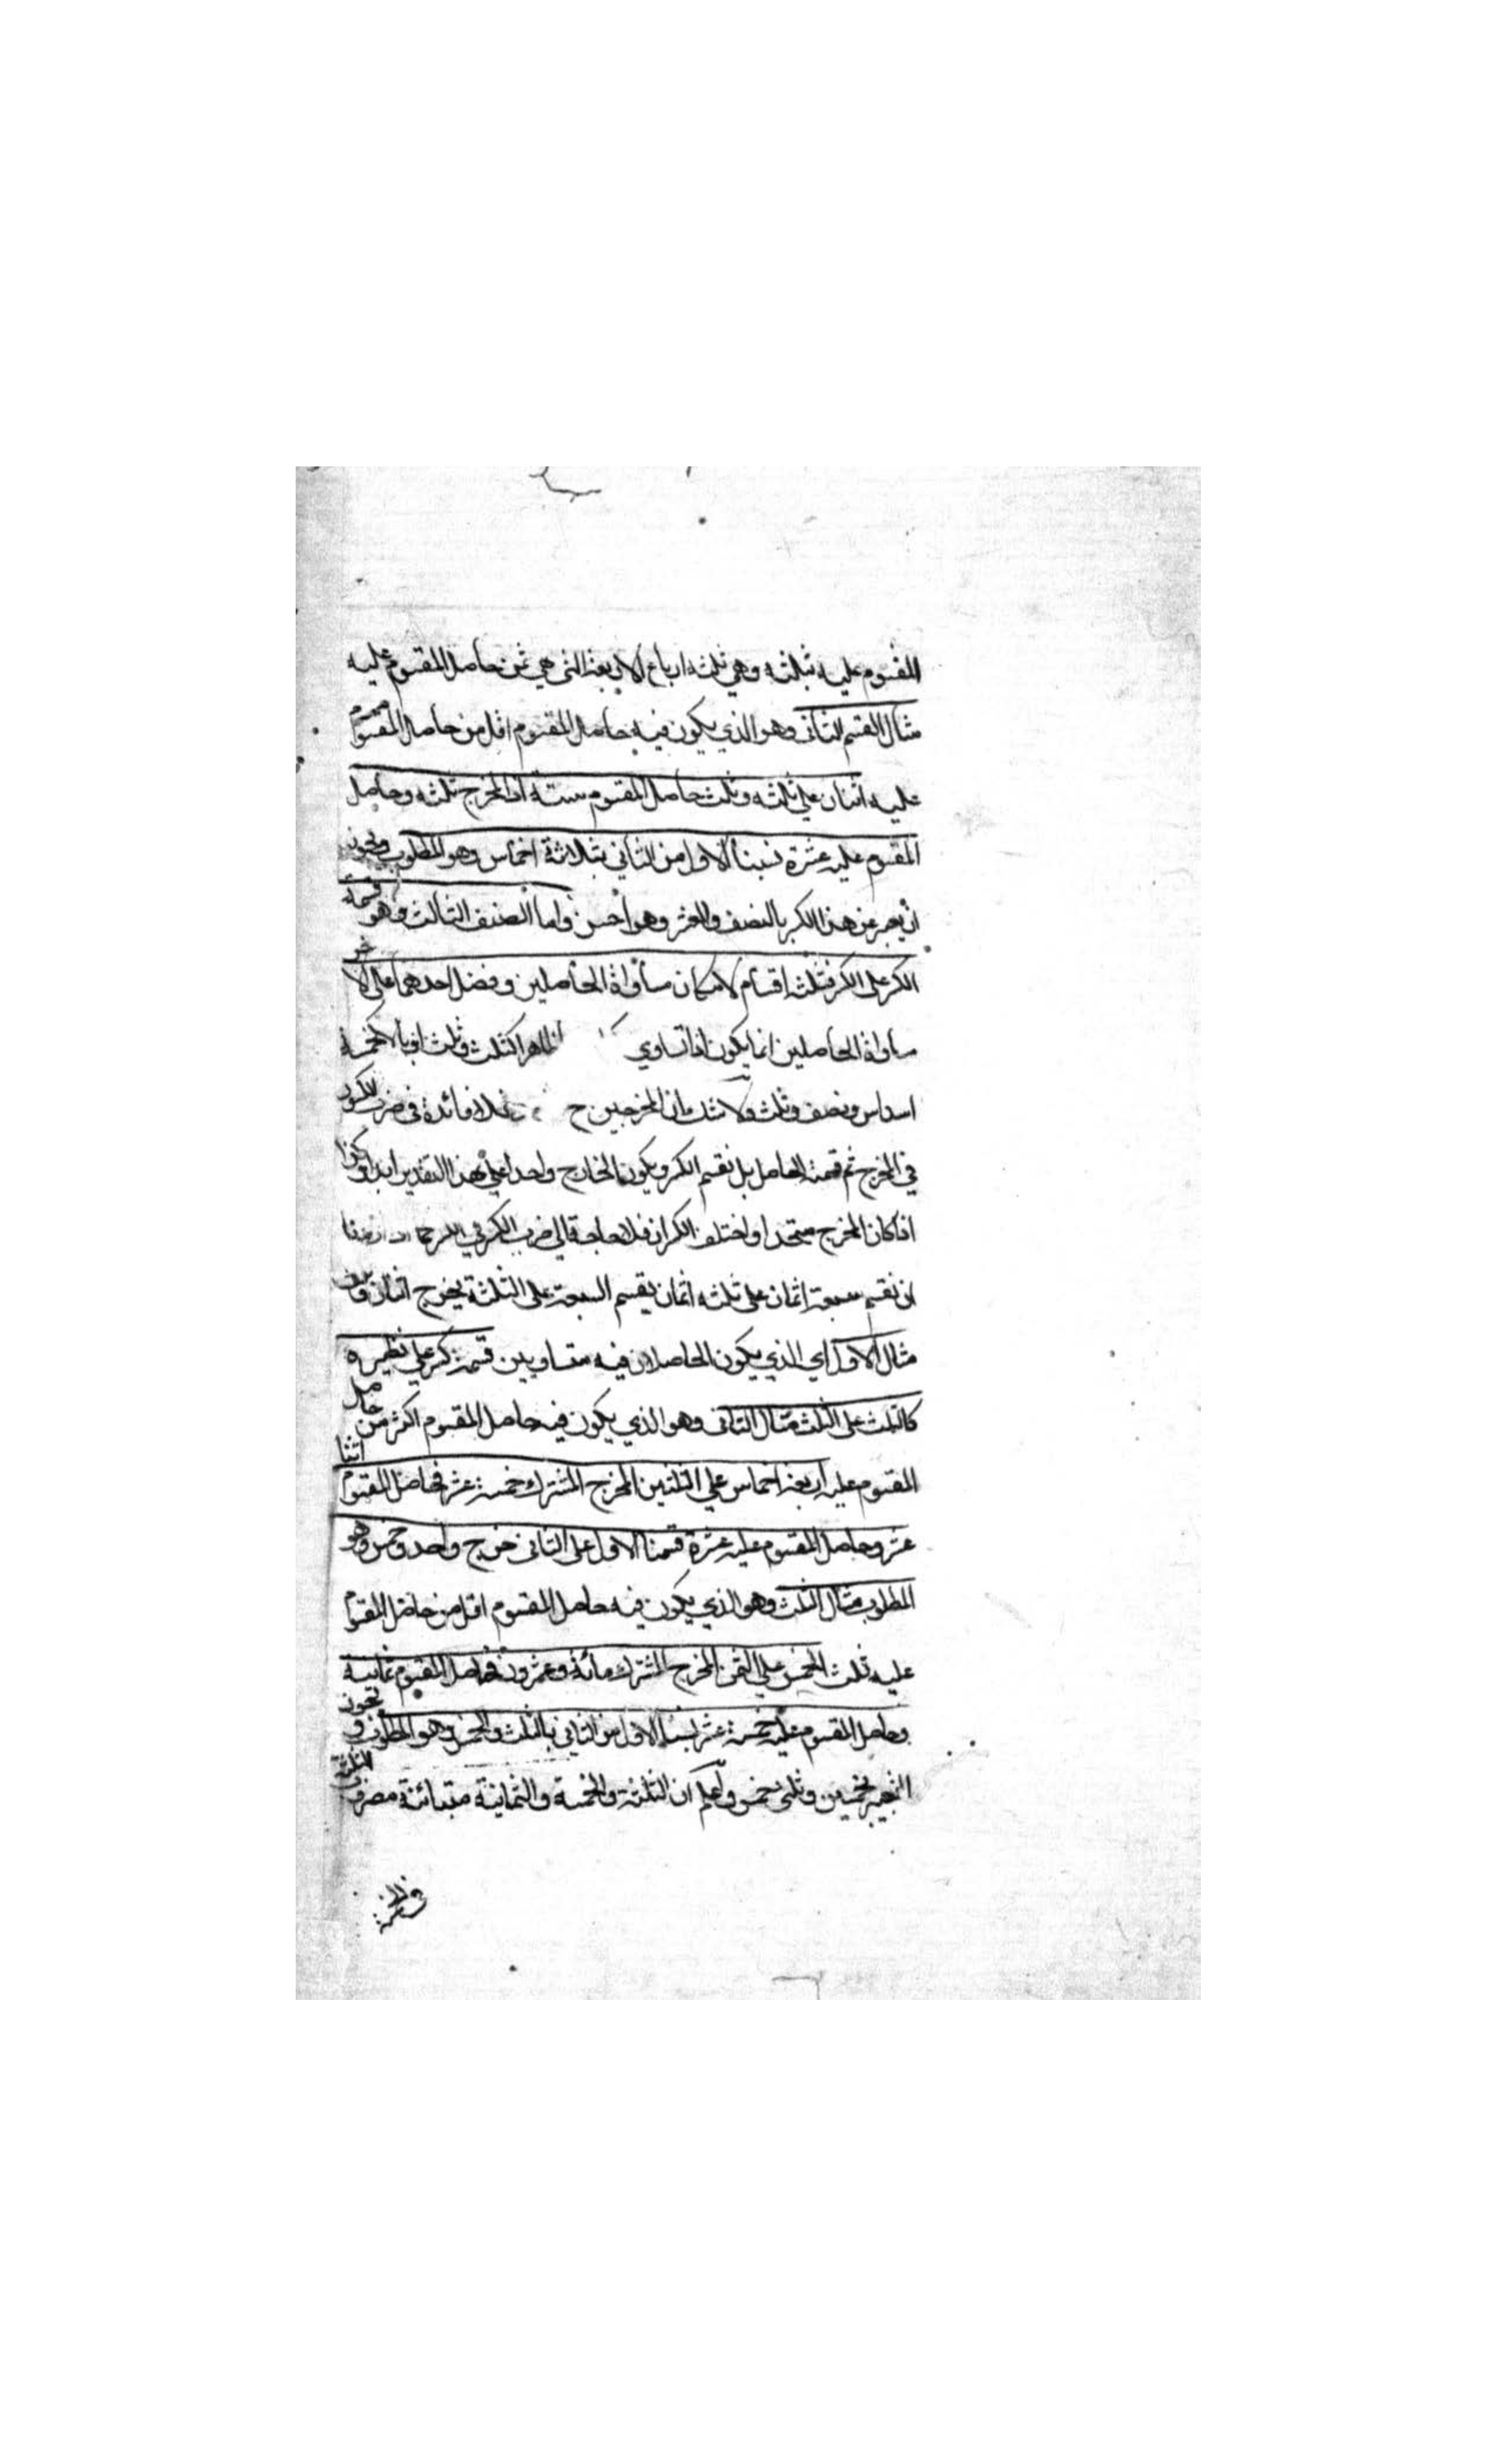 المقسوم عليه بثلثه وهي ثلثه ارباع الاربعة التى هي ثمن حاصل المقسوم عليه
مثال القسم الثانى وهو الذي يكون فيه حاصل المقسوم اقل من حاصل المقسوم
عليه اثنان علي ثلثه وثلث حاصل المقسوم سته اذ المخرج ثلثه وحاصل
المقسوم عليه عشرة نسبنا الاول من الثاني بثلاثة اخماس وهو المطلوب ويجوز
ان يعبر عن هذا الكسر بالنصف والعشر وهو احسن واما الصنف الثالث وهو قسمة
الكسر على الكسر فثلثه اقسام لامكان مساواة الحاصلين وفضل احدهما على الاخر
مساواة الحاصلين انما يكون اذا تساوي الظاهر كثلث وثلث او بالا كخمسة
اسداس ونصف وثلث ولا شك وان المخرجين ح فلا فائدة في ضرب الكسور
في المخرج ثم قسمة الحاصل بل نقسم الكسر ويكون الخارج واحدا علي هذا التقدير ابدا وكذا
اذا كان المخرج متحدا واختلف الكسران فلا حاجة الى ضرب الكسر في المخرج اردنا
ان نقسم سبعة اثمان على ثلثه اثمان نقسم السبعة على الثلثة يخرج اثنان وثلث
مثال الاول اي الذي يكون الحاصلان فيه متساويين قسمة كسر علي نظيره
كالثلث على الثلث مثال الثانى وهو الذي يكون فيه حاصل المقسوم اكثر من حاصل
المقسوم عليه اربعة اخماس علي الثلثين المخرج المشترك خمسة عشر فحاصل المقسوم اثنا
عشر وحاصل المقسوم عليه عشرة قسمنا الاول على الثانى خرج واحد وخمس وهو
المطلوب مثال الثلث وهو الذي يكون فيه حاصل المقسوم اقل من حاصل المقسوم
عليه ثلث الخمس علي الثمن المخرج المشترك مائة وعشرون فحاصل المقسوم ثمانية
وحاصل المقسوم عليه خمسة عشر نسبنا الاول من الثاني بالثلث والخمس وهو المطلوب ويجوز
التعبير بخمسين وثلثى خمس واعلم ان الثلثة والخمسة والثمانية متبائنة مضروب الثلثة